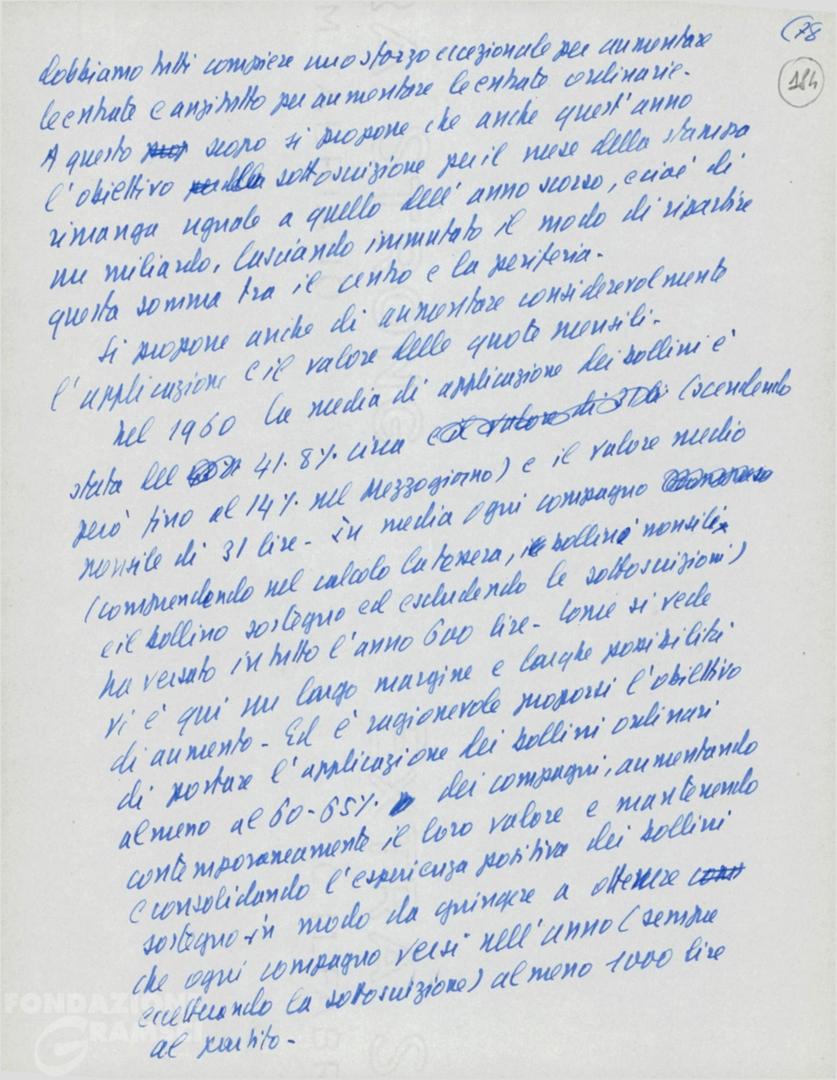 (78
184
dobbiamo tutti compiere uno sforzo eccezionale per aumentare
le entrate e anzitutto per aumentare le entrate ordinarie.
A questo scopo si propone che anche quest'anno
l'obiettivo sottoscrizione per il mese della stampa
rimanga uguale a quello dell'anno scorso, e cioè di
un miliardo, lasciando immutato il modo di ripartire
questa somma tra il centro e la periferia.
Si propone anche di aumentare considerevolmente
l'applicazione e il valore delle quote mensili.
Nel 1960 la media di applicazione dei bollini è
stata del 41.8% circa (scendendo
però fino al 14% nel Mezzogiorno) e il valore medio
mensile di 31 lire - In media ogni compagno
(comprendendo nel calcolo la tessera, bollini mensili
e il bollino sostegno ed escludendo le sottoscrizioni)
ha versato in tutto l'anno 600 lire - Come si vede
vi è qui un largo margine e larghe possibilità
di aumento - Ed è ragionevole proporsi l'obiettivo
di portare l'applicazione dei bollini ordinari
almeno al 60-65% dei compagni, aumentando
contemporaneamente il loro valore e mantenendo
e consolidando l'esperienza positiva dei bollini
sostegno in modo da giungere a ottenere
che ogni compagno versi nell'anno (sempre
eccettuando la sottoscrizione) almeno 1000 lire
al partito -
FONDAZIONE
GRAMSCI